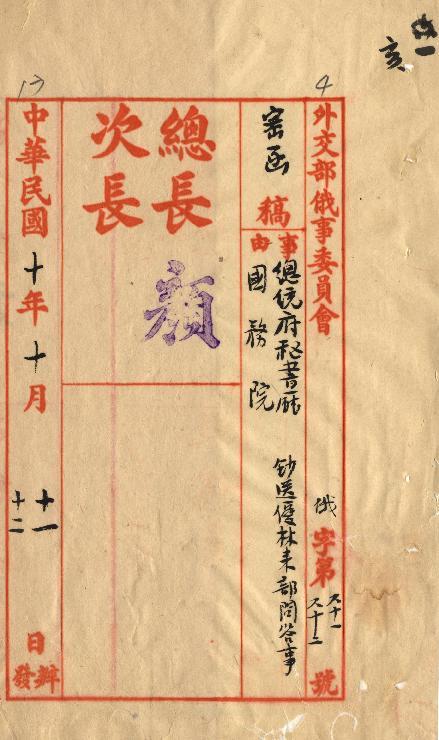 亥
4
17
外交部俄事委員會
俄字第
號
密函稿
事由
總統府秘書廳
國務院
鈔送優林來部問答事
總長
次長
顏
中華民國十年十月
十一
十二
日
辦
發